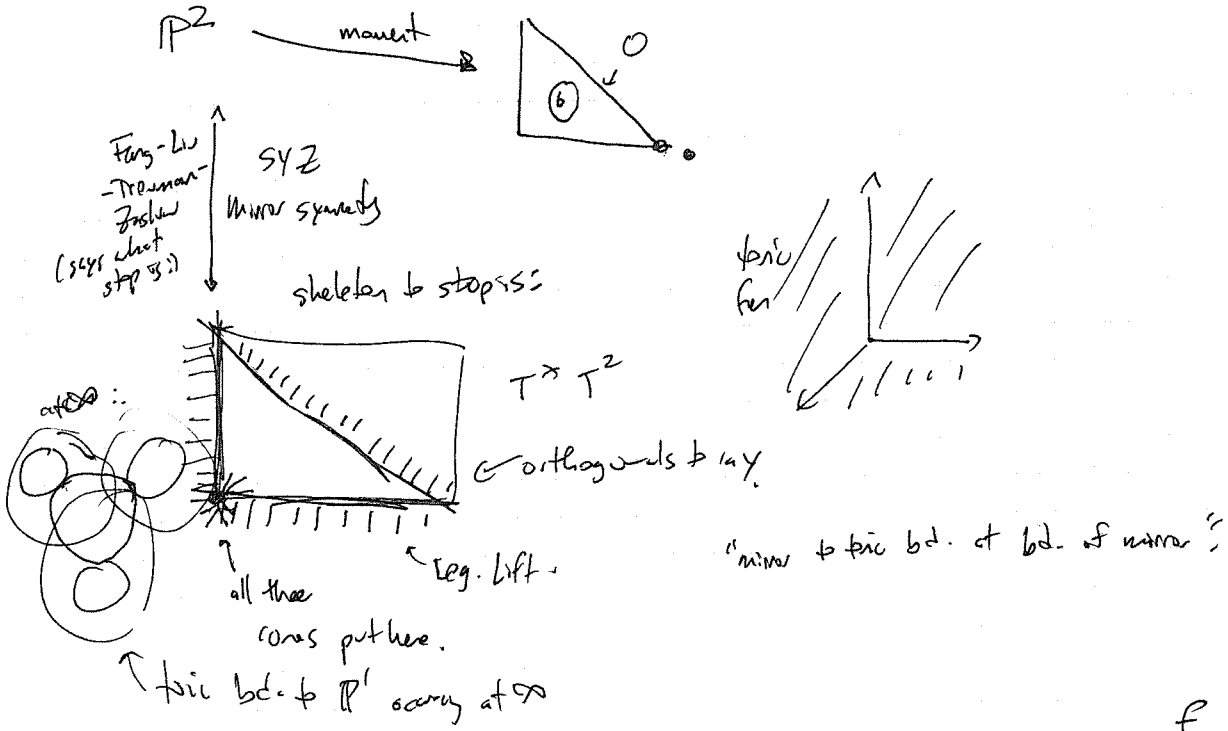 P²
moment
O
6
Fang-Liu
-Treuman-
Zaslow
(says what
stop is:)
SYZ
Mirror symmetry
skeleton to stop is:
toric
fan
T* T²
at ∞:
← orthogonals to ray.
"mirror to toric bd. at bd. of mirror":
leg. lift.
all three
cones put here.
toric bd. to P¹ occuring at ∞
f